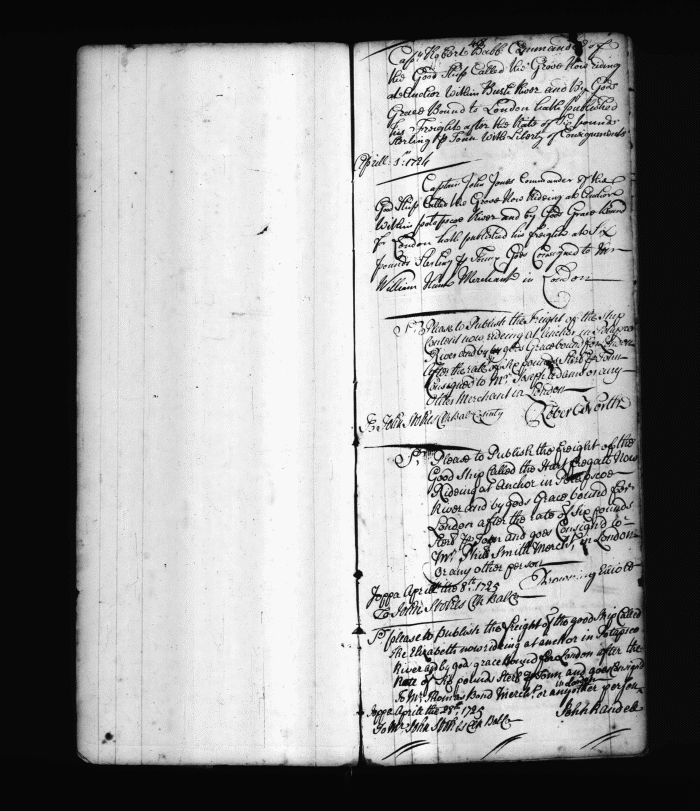 Capt Robert Babb Commander of
the Good Ship Called the Grove Now riding
at Anchor within Bush River and by Gods
Grace Bound to London hath published
his Freight after the Rate of Six pounds
Sterling p Tonn with Liberty of Consignments
Aprill 1st 1724
Captain John Jones Commander of the
Good Ship Called the Grove Now Rideing at Anchor
Within potapscoe River and by Gods Grace Bound
for London hath published his freight at Six
pounds Sterling p Tonn Goes Consigned to Mr
William Hunt Merchant in London
Sr Please to Publish the Freight of the Ship
Content now rideing at Anchor in Patapsco
River and by by gods Grace bound for London
After the rate of Six pounds Sterl p Tonn
Consigned to Mr Joseph Adams or any
Other Merchant in London
To John Stokes Clk Balt County Robert North
Sr Please to Publish the freight of the
Good Ship Called the Hart fregate Now
Rideing at Anchor in Patapscoe
River and by gods Grace bound for
London after the rate of Six pounds
Sterl p Tonn and goes Consignd to
Mr Smith Mercht in London
or any other person
Joppa Aprill the 8th 1725
To John Stokes Clk Balt
Sr please to publish the freight of the good ship Called
the Elizabeth now rideing at anchor in Patapsco
River and by god grace bound for London after the
rate of Six pounds Sterl p Tonn and goes Consignd
in London
To Mr Thomas Bond Mercht or any other person
Joppa Aprill the 28th 1725 John Randell
To Mr John Stokes Clk Balt